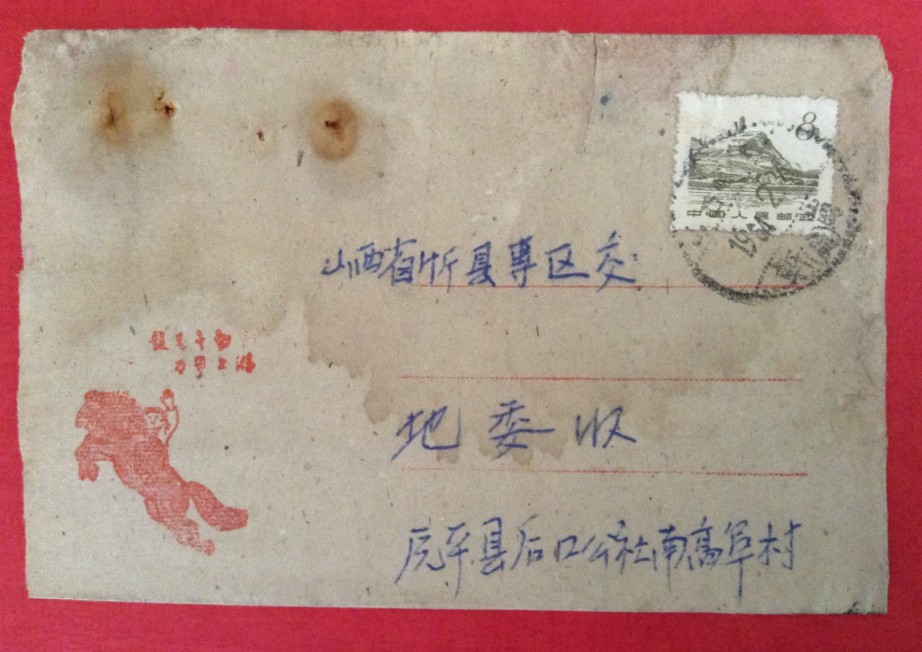 8
中国人民邮政
1964
山西省忻县專区交
鼓足干劲
力争上游
地委收
原平县后口公社南高阜村